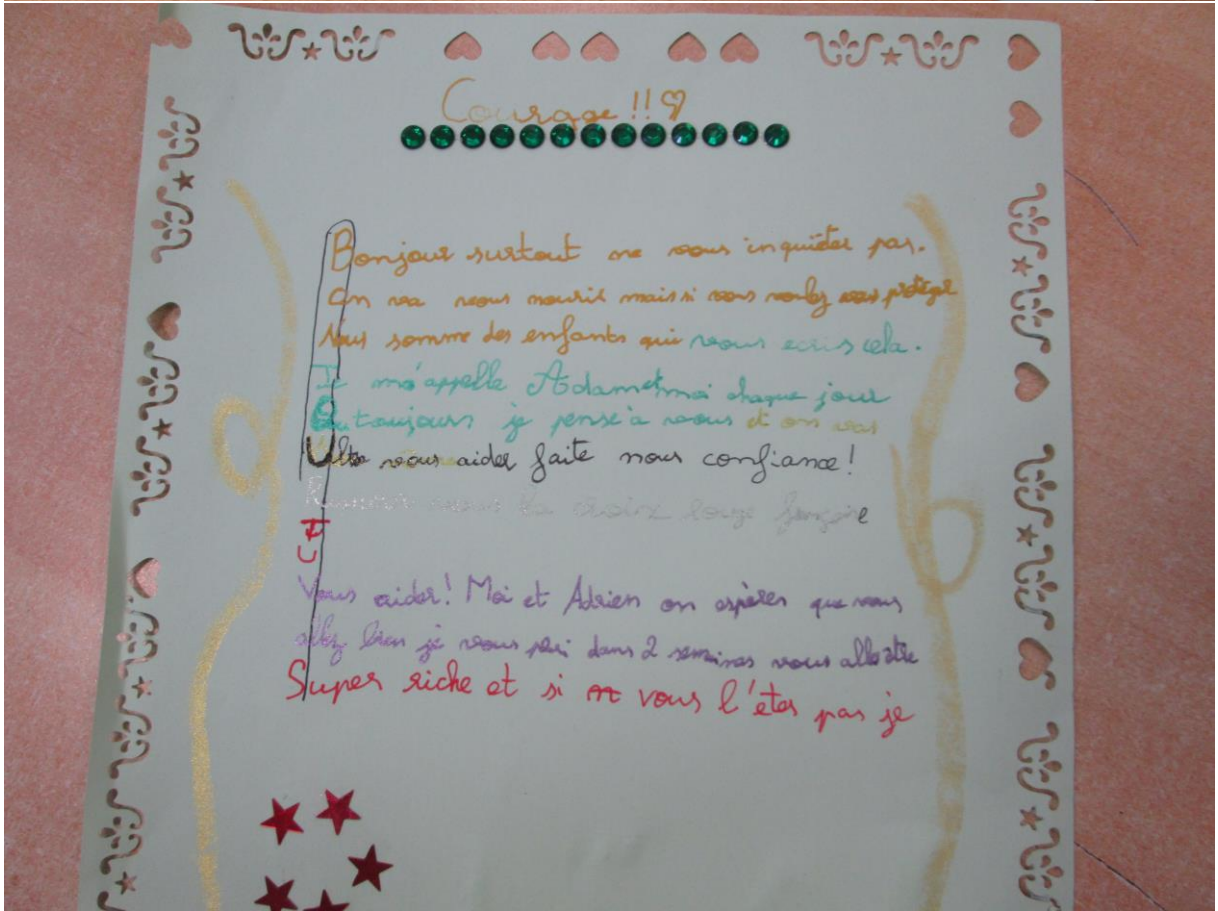 Courage !! ♡
Bonjour surtout ne vous inquiéter pas.
On va vous nourir mais si vous voulez vous protéger
Nous somme des enfants qui vous ecris cela.
Je m'appelle Adam et moi chaque jour
Ou toujours je pense à vous et on vas
vous aider faite nous confiance !
nous la croix rouge
Vous aider ! Moi et Adrien on espères que vous
allez bien je vous pari dans 2 semaines vous alle être
Super riche et si vous l'êtes pas je